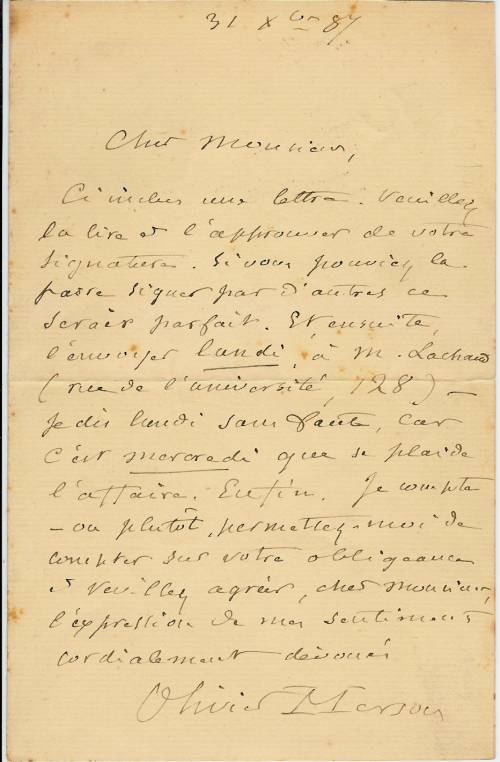 31 Xbre 87
Cher Monsieur,
Ci inclus une lettre. Veuillez
la lire et l'approuver de votre
signature. Si vous pouviez la
faire signer par d'autres ce
serait parfait. Et ensuite,
l'envoyer lundi, à M. Lachaud
(rue de l'université, 128) –
Je dis lundi sans faute, car
c'est mercredi que se plaide
l'affaire. Enfin. Je compte
– ou plutôt, permettez-moi de
compter sur votre obligeance
et veuillez agréer, cher monsieur,
l'expression de mes sentiments
cordialement dévoués
Olivier Merson